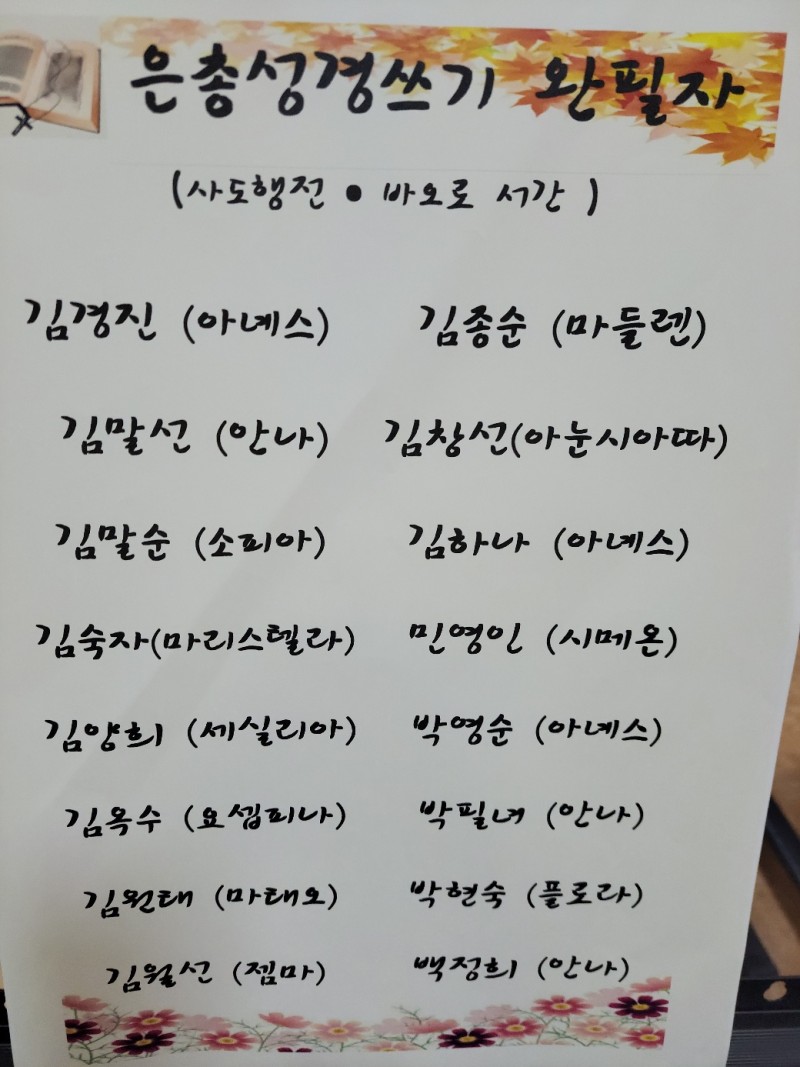 은총성경쓰기 완필자
(사도행전 • 바오로 서간)
김경진 (아녜스) 김종순 (마들렌)
김말선 (안나) 김창선(아눈시아따)
김말순 (소피아) 김하나 (아녜스)
김숙자(마리스텔라) 민영인 (시메온)
김양희 (세실리아) 박영순 (아녜스)
김옥수 (요셉피나) 박필녀 (안나)
김원태 (마태오) 박현숙 (플로라)
김월선 (젬마) 백정희 (안나)